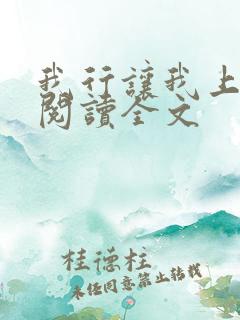 我行讓我上
閱讀全文
桂德柱
未經同意禁止轉載